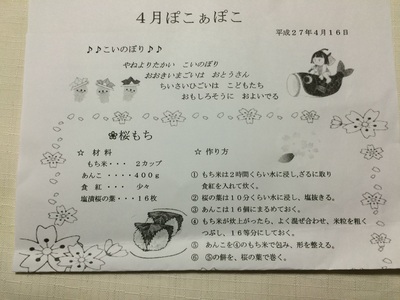 4月ぽこぁぽこ
平成27年4月16日
♪♪こいのぼり♪♪
やねよりたかい こいのぼり
おおきいまごいは おとうさん
ちいさいひごいは こどもたち
おもしろそうに およいでる
❀桜もち
☆ 材料
もち米・・・ 2カップ
あんこ ・・・・400g
食紅・・・ 少々
塩漬桜の葉・・・16枚
☆ 作り方
① もち米は2時間くらい水に浸し、ざるに取り
食紅を入れて炊く。
② 桜の葉は10分くらい水に浸し、塩抜きる。
③ あんこは16個にまるめておく。
④ もち米が炊上がったら、よく混ぜ合わせ、米粒を粗く
つぶし、16等分にしておく。
⑤ あんこを④のもち米で包み、形を整える。
⑥ ⑤の個を、桜の葉で巻く。